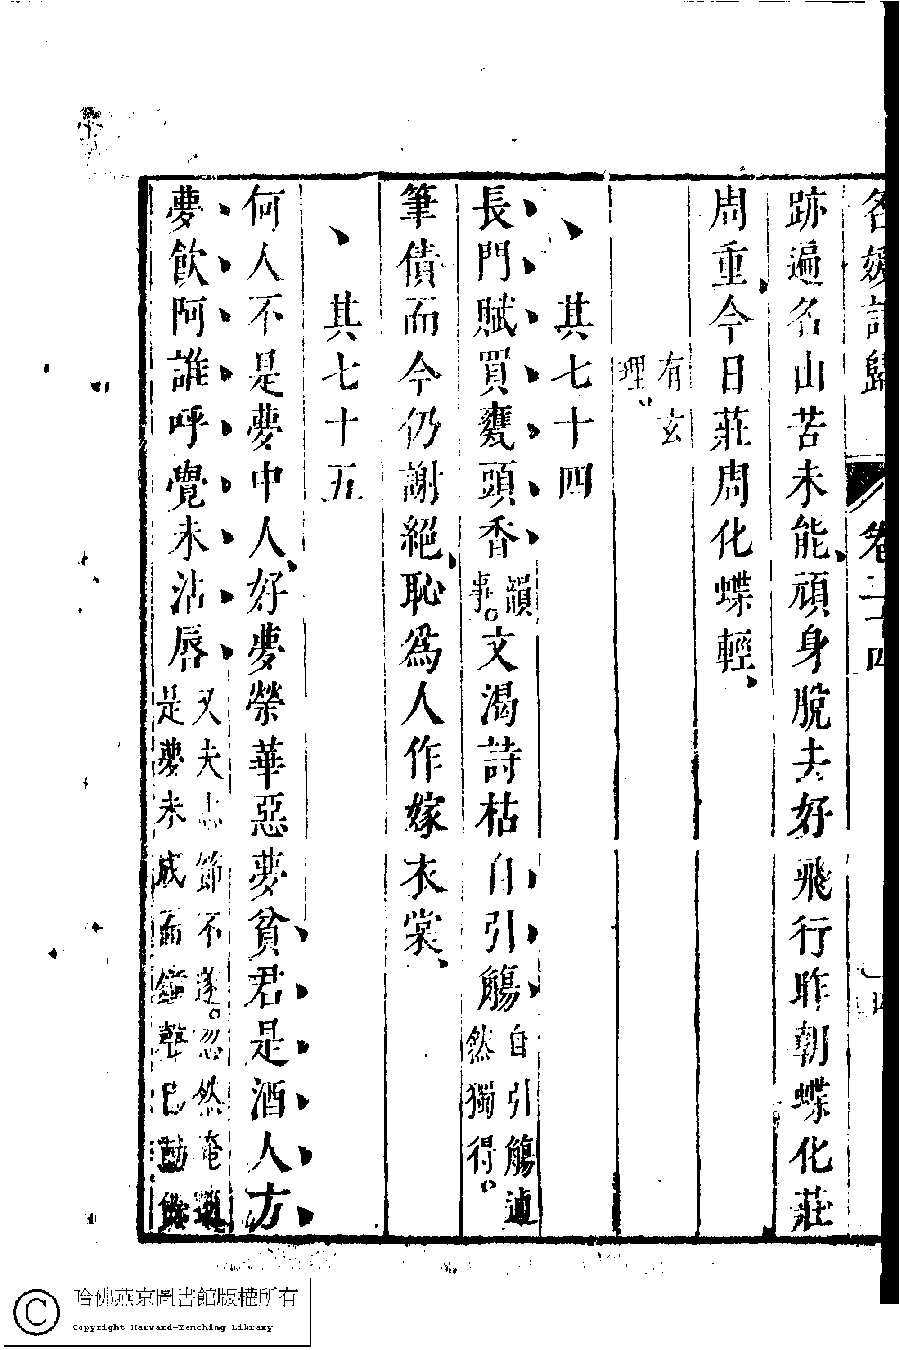 名媛詩歸 卷三十四
跡遍名山苦未能頑身脫去好飛行昨朝蝶化莊
周重今日莊周化蝶輕
有玄
理
其七十四
長門賦買甕頭香
韻
事
文渴詩枯自引觴
自引觴逌
然獨得
筆債而今仍謝絕恥為人作嫁衣裳
其七十五
何人不是夢中人好夢榮華惡夢貧君是酒人方
夢飲阿誰呼覺未沾唇
丈夫志節不遂忽然奄
是夢未成而鐘聲已動
哈佛燕京圖書館版權所有
Copyright Harvard-Yenching Library